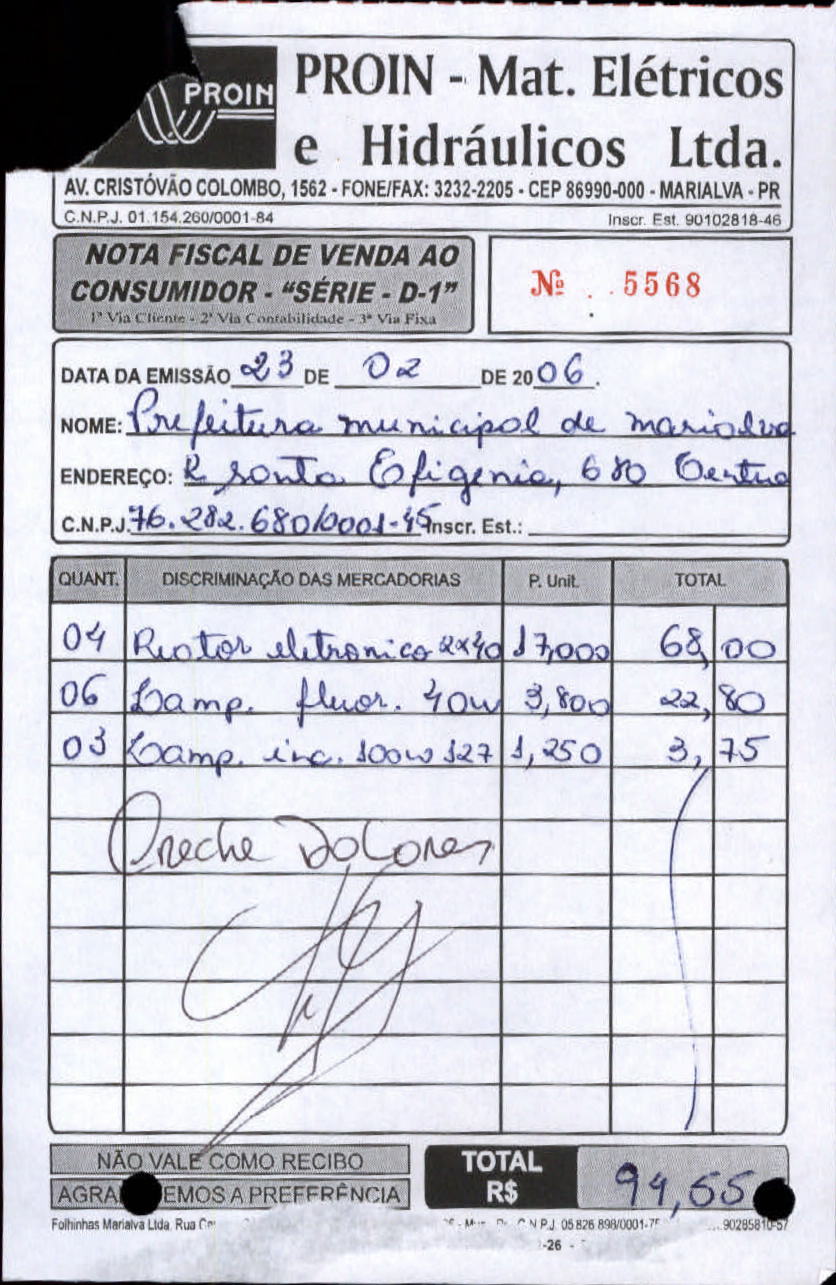 PROIN
PROIN - Mat. Elétricos
e Hidráulicos Ltda.
AV. CRISTÓVÃO COLOMBO, 1562 - FONE/FAX: 3232-2205 - CEP 86990-000 - MARIALVA - PR
C.N.P.J. 01.154.260/0001-84 Inscr. Est. 90102818-46
NOTA FISCAL DE VENDA AO
CONSUMIDOR - "SÉRIE - D-1"
1ª Via Cliente - 2ª Via Contabilidade - 3ª Via Fixa
Nº 5568
DATA DA EMISSÃO 23 DE 02 DE 2006.
NOME: Prefeitura municipal de marialva
ENDEREÇO: R santa Efigenia, 680 Centro
C.N.P.J. 76.282.680/0001-45 Inscr. Est.:
QUANT. DISCRIMINAÇÃO DAS MERCADORIAS P. Unit. TOTAL
04 Reator eletronico 2x40 17,000 68,00
06 Lamp. fluor. 40w 3,800 22,80
03 Lamp. inc. 100w 127 1,250 3,75
Creche Dolores
NÃO VALE COMO RECIBO
AGRA EMOS A PREFERÊNCIA
TOTAL
R$ 94,55
Folhinhas Marialva Ltda. Rua C.N.P.J. 05.826.898/0001-7 90285810-57
-26 -